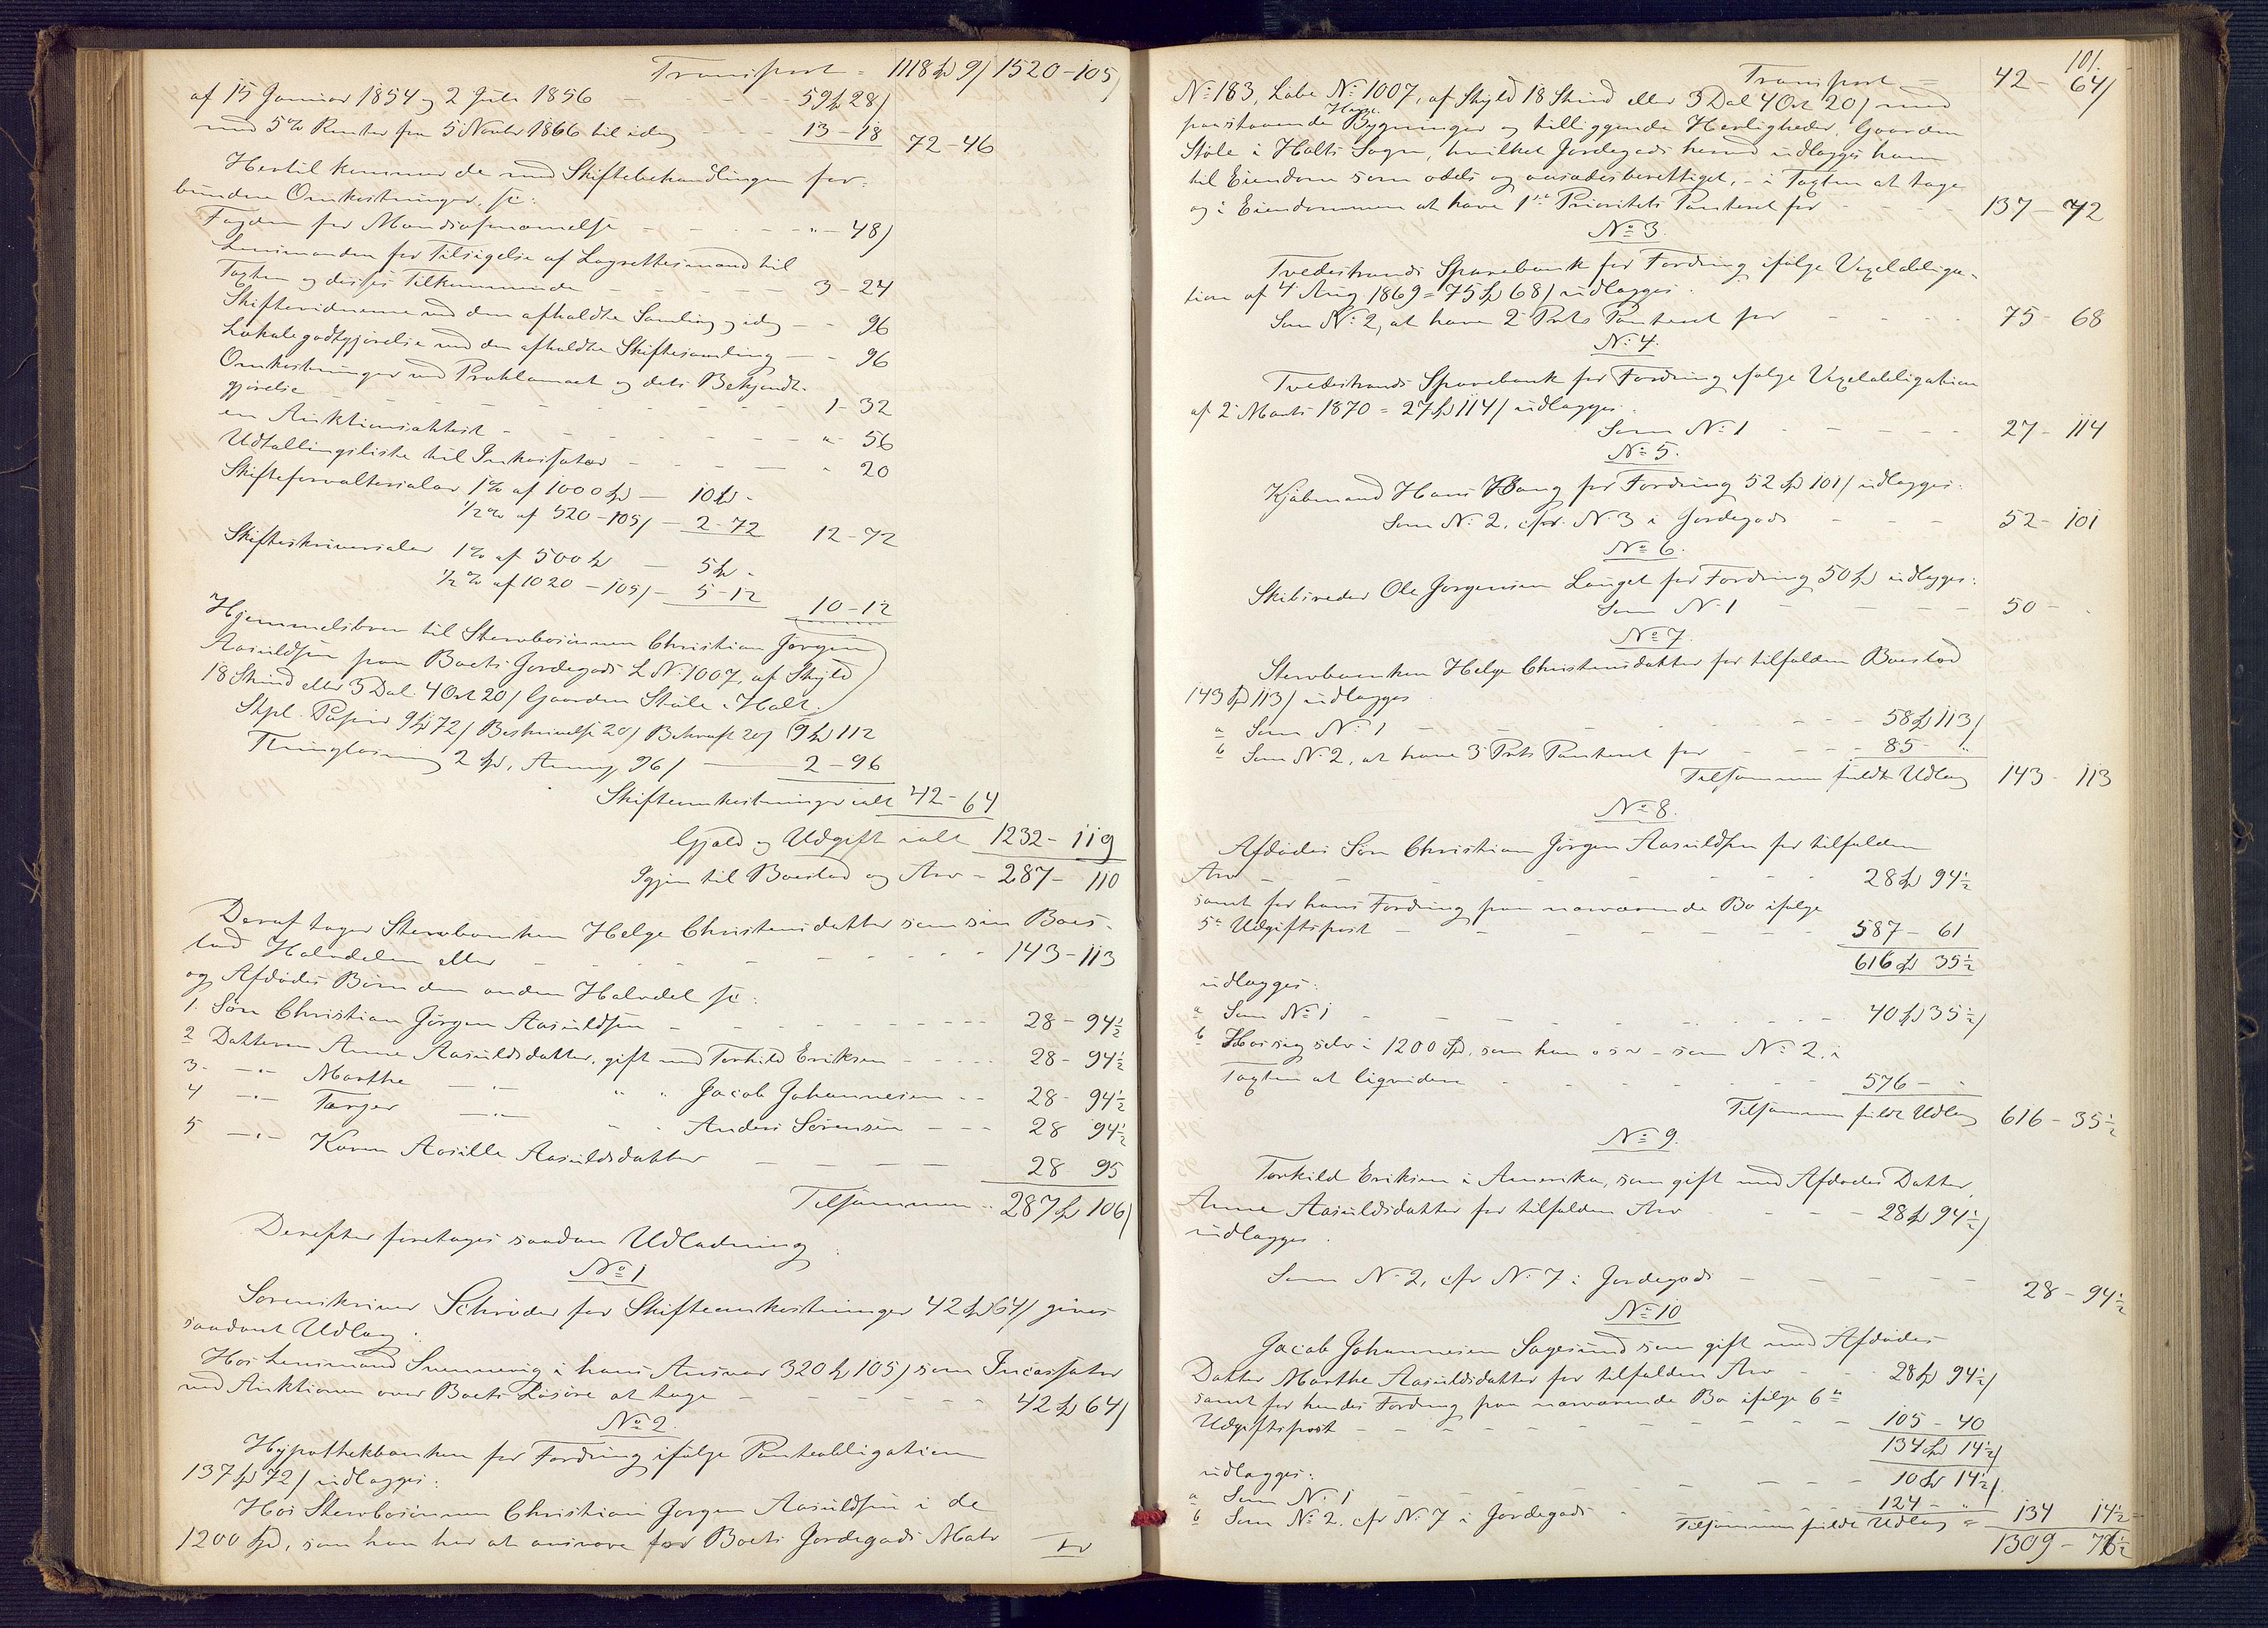 Transport = 1118 Sp 9 / 1520 - 105 /
af 15 Januar 1854 og 2 Juli 1856 - - - 59 Sp 28 /
med 5 % Renter fra 5 Novbr 1866 til idag - - 13 - 18 72 - 46
Hertil kommer de med Skiftebehandlingen for-
bundne Omkostninger, sc:
Fogden for Mandsopnævnelse - - - " - 48 /
Lensmanden for Tilsigelse af Laugrettesmænd til
Taxten og disses Tilkommende - - - 3 - 24
Skiftevidnerne ved den afholdte Samling og idag - - 96
Lokalegodtgjørelse ved den afholdte Skiftesamling - - 96
Omkostninger ved Proklamaet og dets Bekjendt-
gjørelse - - - 1 - 32
en Auktionsattest - - - " 56
Udtællingsliste til Inkassator - - - " 20
Skifteforvaltersalær 1 % af 1000 Sp - 10 Sp -
1/2 % af 520 - 105 / - 2 - 72 12 - 72
Skifteskriversalær 1 % af 500 Sp - 5 Sp -
1/2 % af 1020 - 105 / - 5 - 12 10 - 12
Hjemmelsbrev til Stervbosønnen Christian Jørgen
Aasuldsen paa Boets Jordegods L. No 1007, af Skyld
18 Skind eller 3 Dal. 4 Ort 20 / Gaarden Støle i Holt.
Stpl. Papir 9 Sp 72 / Beskrivelse 20 / Bekræft 20 / 9 Sp 112
Thinglæsning 2 Sp, Anmg. 96 / - 2 - 96
Skifteomkostninger ialt 42 - 64
Gjæld og Udgift ialt 1232 - 119
Igjen til Boeslod og Arv - 287 - 110
Deraf tager Stervboenken Helge Christensdatter som sin Boes-
lod Halvdelen eller - - - 143 - 113
og Afdødes Børn den anden Halvdel sc:
1. Søn Christian Jørgen Aasuldsen - - - 28 - 94 1/2
2 Datteren Anne Aasuldsdatter, gift med Torkild Eriksen - - - 28 - 94 1/2
3. - " - Marthe - " - " " Jacob Johannesen - - 28 - 94 1/2
4 - " - Tarjer - " - " " Anders Sørensen - - - 28 94 1/2
5 - " - Karen Aasille Aasuldsdatter - - - 28 95
Tilsammen - 287 Sp 106 /
Derefter foretages saadan Udlodning:
No 1
Sorenskriver Schrøder for Skifteomkostninger 42 Sp 64 / gives
saadant Udlæg:
Hos Lensmand Svennevig i hans Ansvar 320 Sp 105 / som Incassator
ved Auktionen over Boets Løsøre at tage - - - 42 Sp 64 /
No 2.
Hypothekbanken for Fordring ifølge Panteobligation
137 Sp 72 / udlægges:
Hos Stervbosønnen Christian Jørgen Aasuldsen i de
1200 Spd, som han har at ansvare for Boets Jordegods Matr
101.
Transport = 42 - 64 /
No 183, Løbe No 1007, af Skyld 18 Skind eller 3 Dal 4 Ort 20 / med
paastaaende Huse Bygninger og tilliggende Herligheder, Gaarden
Støle i Holts Sogn, hvilket Jordegods herved udlægges ham
til Eiendom som odels og aasædesberettiget, - i Taxten at tage
og i Eiendommen at have 1ste Prioritets Panteret for - - 137 - 72
No 3.
Tvedestrands Sparebank for Fordring ifølge Vexelobliga-
tion af 4 Aug 1869 = 75 Sp 68 / udlægges:
Som No 2, at have 2 Prts Panteret for - - - 75 - 68
No 4.
Tvedestrands Sparebank for Fordring ifølge Vexelobligation
af 2 Marts 1870 = 27 Sp 114 / udlægges:
Som No 1 - - - 27 - 114
No 5.
Kjøbmand Hans Haug for Fordring 52 Sp 101 / udlægges:
Som No 2, cfr. No 3 i Jordegods - - - 52 - 101
No 6.
Skibsreder Ole Jørgensen Langet for Fordring 50 Sp udlægges:
Som No 1 - - - 50 - "
No 7.
Stervboenken Helge Christensdatter for tilfalden Boeslod
143 Sp 113 / udlægges
a Som No 1 - - - 58 Sp 113 /
b Som No 2, at have 3 Prts Panteret for - - - 85 - "
Tilsammen fuldt Udlæg 143 - 113
No 8.
Afdødes Søn Christian Jørgen Aasuldsen for tilfalden
Arv - - - 28 Sp 94 1/2
samt for hans Fordring paa nærværende Bo ifølge
5te Udgiftspost - - - 587 - 61
616 Sp 35 1/2
udlægges:
a Som No 1 - - - 40 Sp 35 1/2 /
b Hos sig selv i 1200 Spd, som han o s v - som No 2. i
Taxten at liqvidere - - - 576 - "
Tilsammen fuldt Udlæg 616 - 35 1/2
No 9.
Torkild Eriksen i Amerika, som gift med Afdødes Datter,
Anne Aasuldsdatter for tilfalden Arv - - - 28 Sp 94 1/2 /
udlægges:
Som No 2, cfr No 7 i Jordegods - - - 28 - 94 1/2
No 10
Jacob Johannesen Sagesund som gift med Afdødes
Datter Marthe Aasuldsdatter for tilfalden Arv - - 28 Sp 94 1/2 /
samt for hendes Fordring paa nærværende Bo ifølge 6te
Udgiftspost - - - 105 - 40
134 Sp 14 1/2 /
udlægges:
a Som No 1 - - - 10 Sp 14 1/2 /
b Som No 2. cfr No 7 i Jordegods - 124 - " /
Tilsammen fuldt Udlæg = 134 14 1/2
1309 - 76 1/2